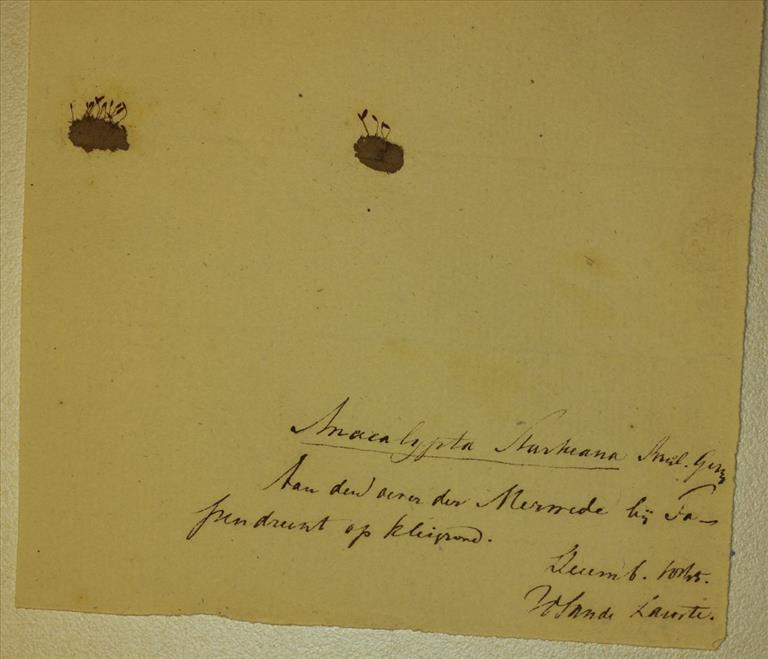 Anacalypta Starkeana Bryol. Germ.
Aan den oever der Merwede bij Pa-
pendrecht op kleigrond.
Decemb. 1845.
v. d. Sande Lacoste.